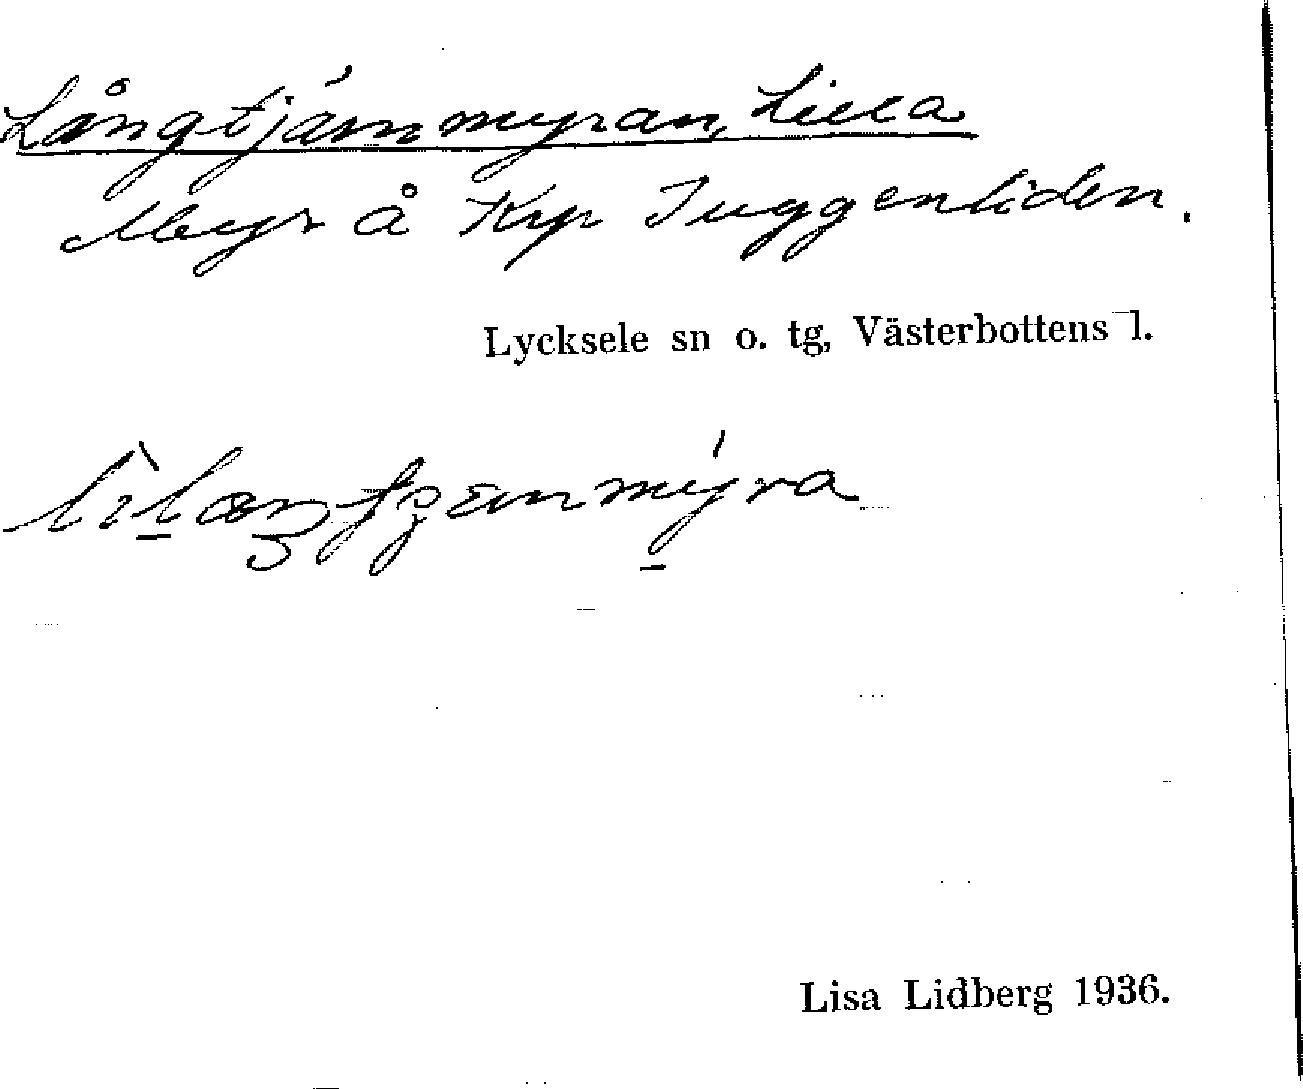 Långtjärnmyran, Lilla
Myr å Krp Juggenliden.
Lycksele sn o. tg, Västerbottens l.
Lisa Lidberg 1936.